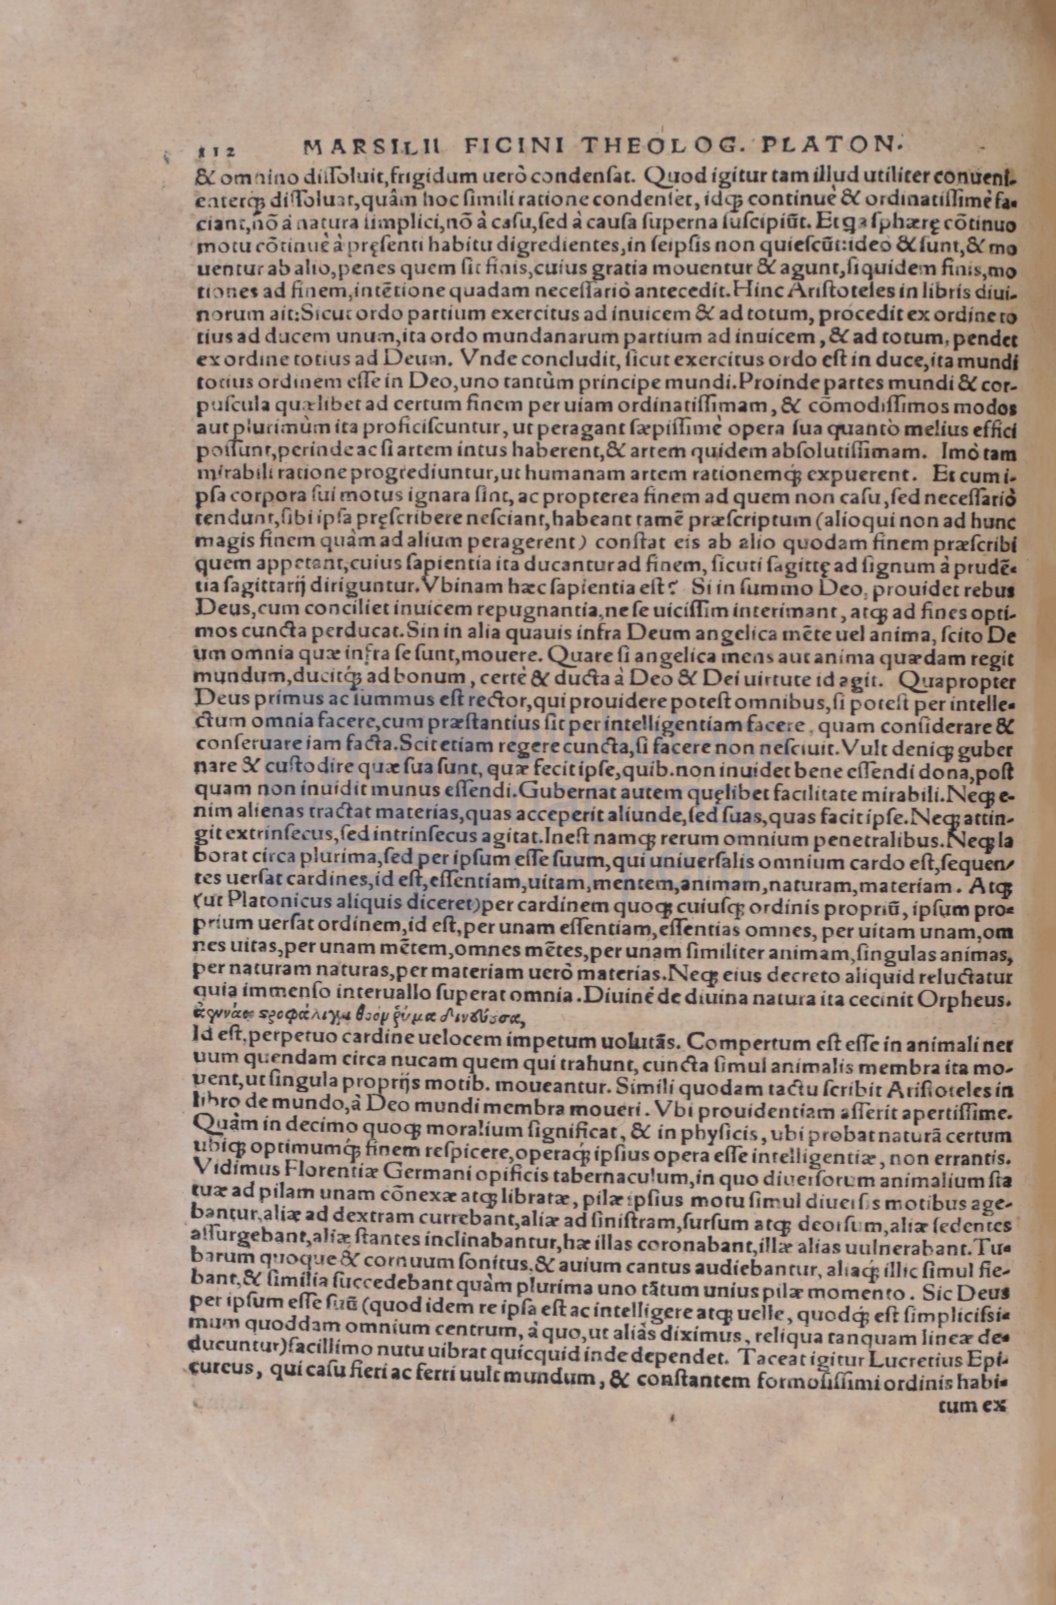 112 MARSILII FICINI THEOLOG. PLATON.
& omnino dissoluit,frigidum uerò condensat. Quod igitur tam illud utiliter conueni-
enterq́; dissoluat,quâm hoc simili ratione condenset, idq́; continuè & ordinatissimè fa-
ciant,nõ à natura simplici,nõ à casu,sed à causa superna suscipiũt. Et ꝗa sphærę cõtinuo
motu cõtinuè à pręsenti habitu digredientes,in seipsis non quiescũt:ideo & sunt,& mo
uentur ab alio,penes quem sit finis,cuius gratia mouentur & agunt,siquidem finis,mo
tiones ad finem,intẽtione quadam necessariò antecedit.Hinc Aristoteles in libris diui-
norum ait:Sicut ordo partium exercitus ad inuicem & ad totum, procedit ex ordine to
tius ad ducem unum,ita ordo mundanarum partium ad inuicem, & ad totum, pendet
ex ordine totius ad Deum. Vnde concludit, sicut exercitus ordo est in duce,ita mundi
totius ordinem esse in Deo,uno tantùm principe mundi.Proinde partes mundi & cor-
puscula quælibet ad certum finem per uiam ordinatissimam, & cõmodissimos modos
aut plurimùm ita proficiscuntur, ut peragant sæpissimè opera sua quantò melius effici
possunt,perinde ac si artem intus haberent,& artem quidem absolutissimam. Imò tam
mirabili ratione progrediuntur,ut humanam artem rationemq́; expuerent. Et cum i-
psa corpora sui motus ignara sint, ac propterea finem ad quem non casu,sed necessariò
tendunt,sibi ipsa pręscribere nesciant,habeant tamẽ præscriptum (alioqui non ad hunc
magis finem quàm ad alium peragerent) constat eis ab alio quodam finem præscribi
quem appetant,cuius sapientia ita ducantur ad finem, sicuti sagittę ad signum à prudẽ-
tia sagittarij diriguntur.Vbinam hæc sapientia est? Si in summo Deo, prouidet rebus
Deus,cum conciliet inuicem repugnantia,ne se uicissim interimant, atq́; ad fines opti-
mos cuncta perducat.Sin in alia quauis infra Deum angelica mẽte uel anima, scito De
um omnia quæ infra se sunt,mouere. Quare si angelica mens aut anima quædam regit
mundum,ducitq́; ad bonum, certè & ducta à Deo & Dei uirtute id agit. Quapropter
Deus primus ac summus est rector,qui prouidere potest omnibus,si potest per intelle-
ctum omnia facere,cum præstantius sit per intelligentiam facere, quam considerare &
conseruare iam facta.Scit etiam regere cuncta,si facere non nesciuit.Vult deniq́; guber
nare & custodire quæ sua sunt, quæ fecit ipse,quib.non inuidet bene essendi dona,post
quam non inuidit munus essendi.Gubernat autem quęlibet facilitate mirabili.Neq́; e-
nim alienas tractat materias,quas acceperit aliunde,sed suas,quas facit ipse.Neq́; attin-
git extrinsecus,sed intrinsecus agitat.Inest namq́; rerum omnium penetralibus.Neq́; la
borat circa plurima,sed per ipsum esse suum,qui uniuersalis omnium cardo est,sequen-
tes uersat cardines,id est,essentiam,uitam,mentem,animam,naturam,materiam. Atq́;
(ut Platonicus aliquis diceret)per cardinem quoq́; cuiusq́; ordinis propriũ, ipsum pro-
prium uersat ordinem,id est,per unam essentiam,essentias omnes, per uitam unam,om
nes uitas,per unam mẽtem,omnes mẽtes,per unam similiter animam,singulas animas,
per naturam naturas,per materiam uerò materias.Neq́; eius decreto aliquid reluctatur
quia immenso interuallo superat omnia.Diuinè de diuina natura ita cecinit Orpheus.
ἀενάῳ στροφάλιγγι θοὸν ῥύμα δινεύουσα,
Id est,perpetuo cardine uelocem impetum uolutãs. Compertum est esse in animali ner
uum quendam circa nucam quem qui trahunt, cuncta simul animalis membra ita mo-
uent,ut singula proprijs motib. moueantur. Simili quodam tactu scribit Aristoteles in
libro de mundo,à Deo mundi membra moueri. Vbi prouidentiam asserit apertissime.
Quàm in decimo quoq́; moralium significat, & in physicis, ubi probat naturã certum
ubiq́; optimumq́; finem respicere,operaq́; ipsius opera esse intelligentiæ, non errantis.
Vidimus Florentiæ Germani opificis tabernaculum,in quo diuersorum animalium sta
tuæ ad pilam unam cõnexæ atq́; libratæ, pilæ ipsius motu simul diuersis motibus age-
bantur,aliæ ad dextram currebant,aliæ ad sinistram,sursum atq́; deorsum,aliæ sedentes
assurgebant,aliæ stantes inclinabantur,hæ illas coronabant,illæ alias uulnerabant.Tu-
barum quoque & cornuum sonitus,& auium cantus audiebantur, aliaq́; illic simul fie-
bant,& similia succedebant quàm plurima uno tãtum unius pilæ momento. Sic Deus
per ipsum esse suũ (quod idem re ipsa est ac intelligere atq́; uelle, quodq́; est simplicissi-
mum quoddam omnium centrum, à quo,ut aliàs diximus, reliqua tanquam lineæ de-
ducuntur)facillimo nutu uibrat quicquid inde dependet. Taceat igitur Lucretius Epi-
cureus, qui casu fieri ac ferri uult mundum, & constantem formosissimi ordinis habi-
tum ex